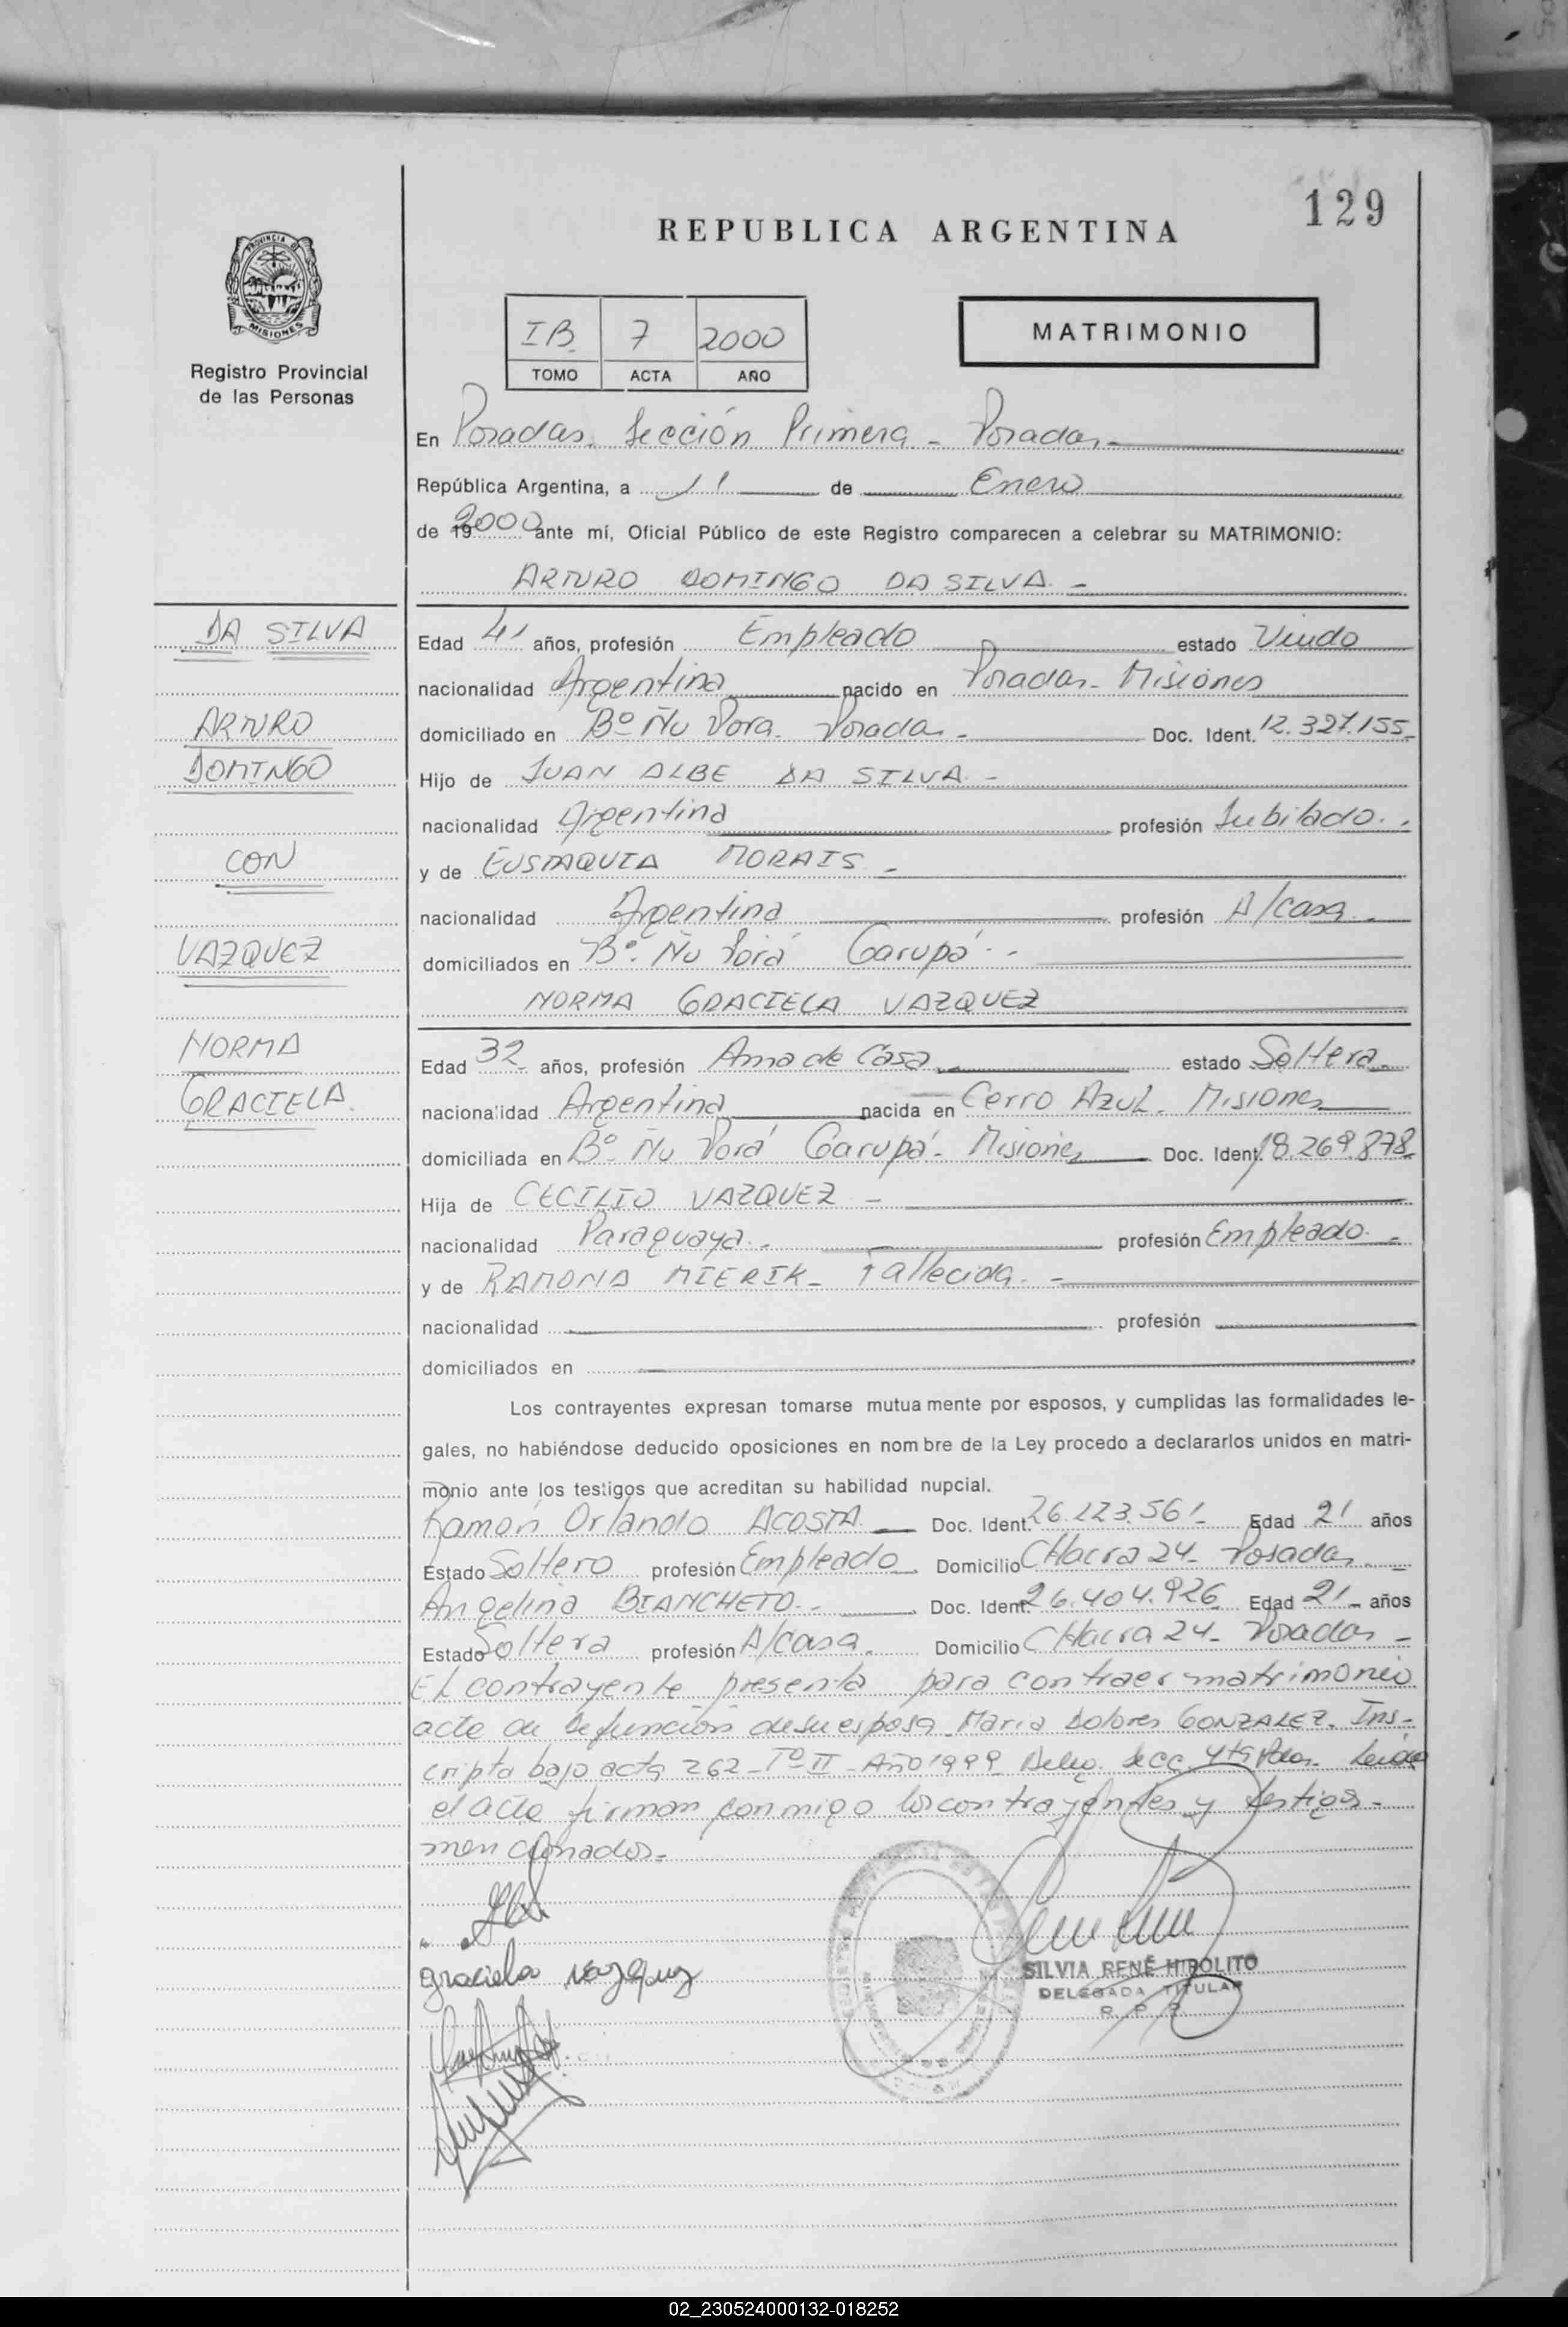 129
REPUBLICA ARGENTINA
PROVINCIA DE
MISIONES
Registro Provincial
de las Personas
IB 7 2000
TOMO ACTA AÑO
MATRIMONIO
En Posadas. Sección Primera - Posadas -
República Argentina, a 11 de Enero
de 2000 ante mí, Oficial Público de este Registro comparecen a celebrar su MATRIMONIO:
ARTURO DOMINGO DA SILVA. -
DA SILVA
ARTURO
DOMINGO
CON
VAZQUEZ
NORMA
GRACIELA.
Edad 41 años, profesión Empleado estado Viudo
nacionalidad Argentina nacido en Posadas - Misiones
domiciliado en Bº Ñu Pora. Posadas - Doc. Ident. 12.327.155.
Hijo de JUAN ALBE DA SILVA. -
nacionalidad Argentina profesión Jubilado. -
y de EUSTAQUIA MORAIS -
nacionalidad Argentina profesión A/casa.
domiciliados en Bº. Ñu Porá Garupá. -
NORMA GRACIELA VAZQUEZ
Edad 32 años, profesión Ama de Casa estado Soltera.
nacionalidad Argentina nacida en Cerro Azul. Misiones
domiciliada en Bº Ñu Porá Garupá - Misiones Doc. Ident. 18.269.878
Hija de CECILIO VAZQUEZ -
nacionalidad Paraguaya. profesión Empleado. -
y de RAMONA MIERIK - Fallecida. -
nacionalidad profesión
domiciliados en
Los contrayentes expresan tomarse mutuamente por esposos, y cumplidas las formalidades le-
gales, no habiéndose deducido oposiciones en nombre de la Ley procedo a declararlos unidos en matri-
monio ante los testigos que acreditan su habilidad nupcial.
Ramón Orlando ACOSTA Doc. Ident. 26.223.561 - Edad 21 años
Estado Soltero profesión Empleado Domicilio CHacra 24 - Posadas. -
Angelina BIANCHETO. - Doc. Ident. 26.404.926 Edad 21 años
Estado Soltera profesión A/casa. Domicilio CHacra 24 - Posadas -
El contrayente presenta para contraer matrimonio
acta de defunción de su esposa Maria Dolores GONZALEZ. Ins-
cripta bajo acta 262 - Tº II - Año 1999 Deleg. Secc. 4ta Pdas. Leida
el acta firman conmigo los contrayentes y testigos -
mencionados. -
graciela vazquez
SILVIA RENÉ HIPOLITO
DELEGADA TITULAR
R. P. P.
02_230524000132-018252